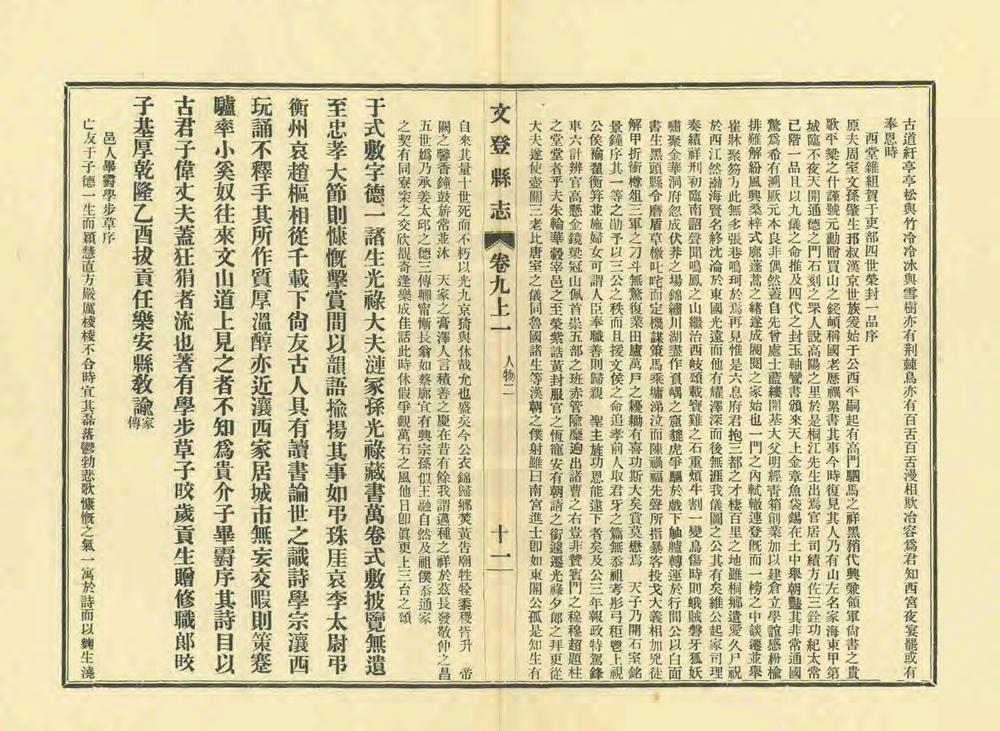 古道紆亭亭松與竹冷冷冰與雪樹亦有荆棘鳥亦有百舌百舌漫相欺冶容爲君知西宮夜宴罷或有
奉恩時
西堂雜紐賀于更部四世榮封一品序
原夫周室文孫肇生邘叔漢京世族爰始于公西平嗣起有高門駟馬之祥黑稍代興兼領軍尚書之貴
歌平梁之什謹號元勳贈買山之錢崸稱國老歷禩累書其事今時復見其人乃有山左名家海東甲第
城臨不夜天開通德之門石刻之罘人說高陽之里於是桐江先生出焉官居司績方佐三銓功紀太常
已階一品且以九儀之命推及四代之封玉軸鸞書頒來天上金章魚袋錫在土中舉朝豔其非常通國
驚爲希有溯厥元本良非偶然蓋自先曾處士藍縷開基大父明經青箱創業加以建倉立學誼感枌楡
排難解紛風興桑梓式廓蓬蒿之緒遂成閥閱之家始也一門之內軾轍連登旣而一榜之中談遷並舉
崔牀聚笏方此無多張巷鳴珂於焉再見惟是六息府君抱三都之才棲百里之地雖桐鄉遺愛久尸祝
於西江然渤海賢名終沈淪於東國光遠而他有耀澤深而後無涯我儀圖之公其有矣維公起家司理
奏績祥刑初臨南詔聲聞鳴鳳之山繼治西岐頌載寶雞之石重煩牛割一變鳥傷時則蛾賊磐牙狐妖
嘯聚金華洞府忽成伏莽之場錦繡川湖盡作負嵎之窟貔虎爭驅於戲下舳艫轉運於行間公以白面
書生黑頭縣令磨盾草檄叱咤而定機謀策馬乘墉涕泣而陳禍福先聲所指暴客投戈大義相加兇徒
解甲折衝樽俎三軍之刁斗無驚復業田廬萬戶之耰鋤有喜功斯大矣賞莫懋焉　天子乃開石室銘
景鐘序其一等之勛予以三公之秩而且援文侯之命追孝前人取君牙之篇無忝祖考彤弓秬鬯上視
公侯褕翟衡笄並施婦女可謂人臣奉職善則歸親　聖主旌功恩能逮下者矣及公三年報政特駕鋒
車六計辨官高懸金鏡梁冠山佩首崇五部之班赤管隃麋遍出諸曹之右豈非贊賓門之穆穆超題柱
之堂堂者乎夫朱輪華轂宰邑之至榮紫誥黃封服官之恆寵安有朝請之銜遠邀光祿夕郎之拜更從
大夫遂使壺關三老比唐室之儀同魯國諸生等漢朝之僕射雖曰南宮進士卽如東閣公孤是知生有
文登縣志　卷九上一　人物二　十一
自來其量十世死而不朽以光九京猗與休哉尤也盛矣今公衣錦歸鄉焚黃吿廟牲牷黍稷皆升　帝
闕之馨香鐘鼓旂常並沐　天家之膏澤人言積善之慶在昔有徐我謂邁種之祥於茲長發敬仲之昌
五世嬀乃承姜太邱之德三傳卿甯慚長翁如蔡廓宜有興宗孫似王融自然及祖僕忝通家
之契有同寮寀之交欣覩奇逢樂成佳話此時休假爭觀萬石之風他日卽眞更上三台之頌
于式敷字德一諸生光祿大夫漣冢孫光祿藏書萬卷式敷披覽無遺
至忠孝大節則慷慨擊賞間以韻語揄揚其事如弔珠厓哀李太尉弔
衡州哀趙樞相從千載下尙友古人具有讀書論世之識詩學宗瀼西
玩誦不釋手其所作質厚溫醇亦近瀼西家居城市無妄交暇則策蹇
驢率小奚奴往來文山道上見之者不知爲貴介子畢霨序其詩目以
古君子偉丈夫蓋狂狷者流也著有學步草子晈歲貢生贈修職郎晈
子基厚乾隆乙酉拔貢任樂安縣敎諭家傳
邑人畢霨學步草序
亡友于子德一生而穎慧直方嚴厲棱棱不合時宜其磊落鬱勃悲歌慷慨之氣一寓於詩而以麴生澆